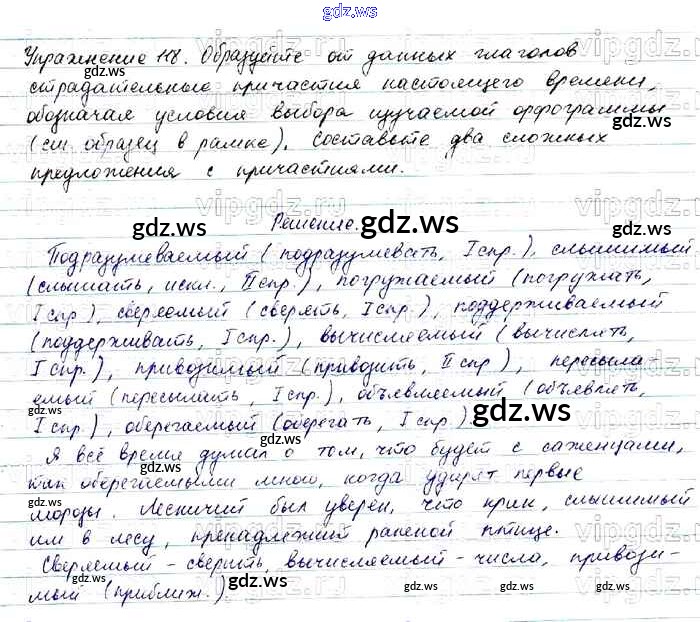 gdz.ws
Упражнение 118. Образуйте от данных глаголов
страдательные причастия настоящего времени,
обозначая условия выбора изучаемой орфограммы
(см. образец в рамке). Составьте два сложных
предложения с причастиями.
Решение.
Подразумеваемый (подразумевать, I спр.), слышимый
(слышать, искл., II спр.), погружаемый (погружать,
I спр.), сверяемый (сверять, I спр.), поддерживаемый
(поддерживать, I спр.), вычисляемый (вычислять,
I спр.), приводимый (приводить, II спр.), пересыла-
емый (пересылать, I спр.), объявляемый (объявлять,
I спр.), оберегаемый (оберегать, I спр.).
Я всё время думал о том, что будет с саженцами,
так оберегаемыми мною, когда ударят первые
морозы. Лесничий был уверен, что крик, слышимый
им в лесу, принадлежит раненой птице.
Сверяемый - сверить, вычисляемый - числа, привози-
мый (приближ.).